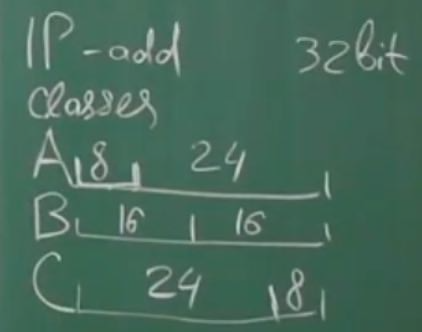 IP-add 32bit
classes
A 8 24
B 16 16
C 24 8